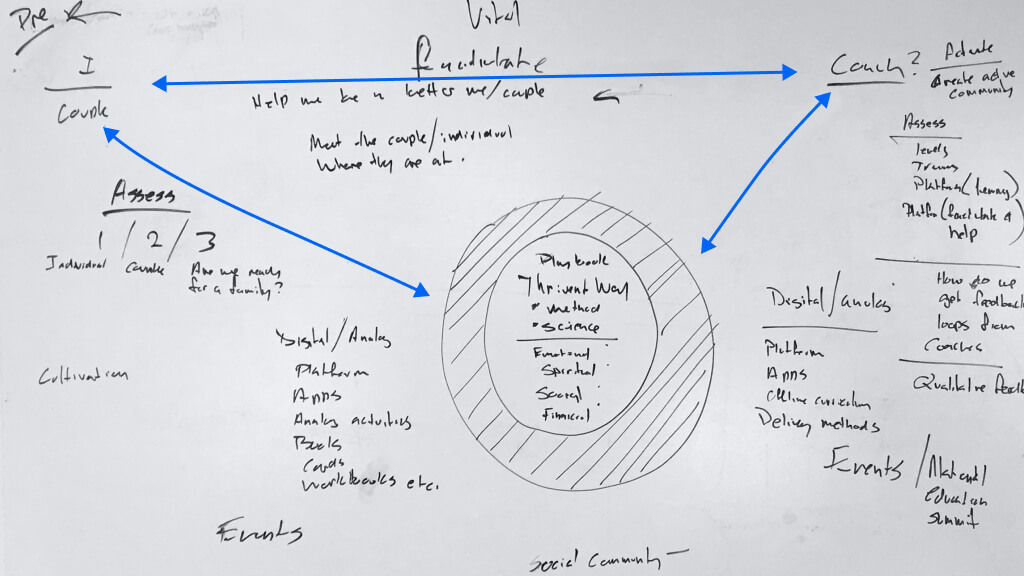 Pre
I
Couple
Vital
Facilitate
Help me be a better me/couple
Meet the couple/individual
Where they are at.
Coach?
Activate
Create active
community
Assess
levels
Trains
Platform (
Platform (facilitate &
help
Assess
1 / 2 / 3
Individual
Couple
Are we ready
for a family?
Cultivation
Digital/Analog
Platform
Apps
Analog activities
Books
Cards
Workbooks etc.
Events
Playbook
Thrivent Way
• method
• science
Emotional
Spiritual
Social
Financial
Social Community —
Digital/analog
Platform
Apps
Offline curriculum
Delivery methods
How do we
get feedback
loops from
Coaches
Qualitative feedb
Events / National
Education
Summit